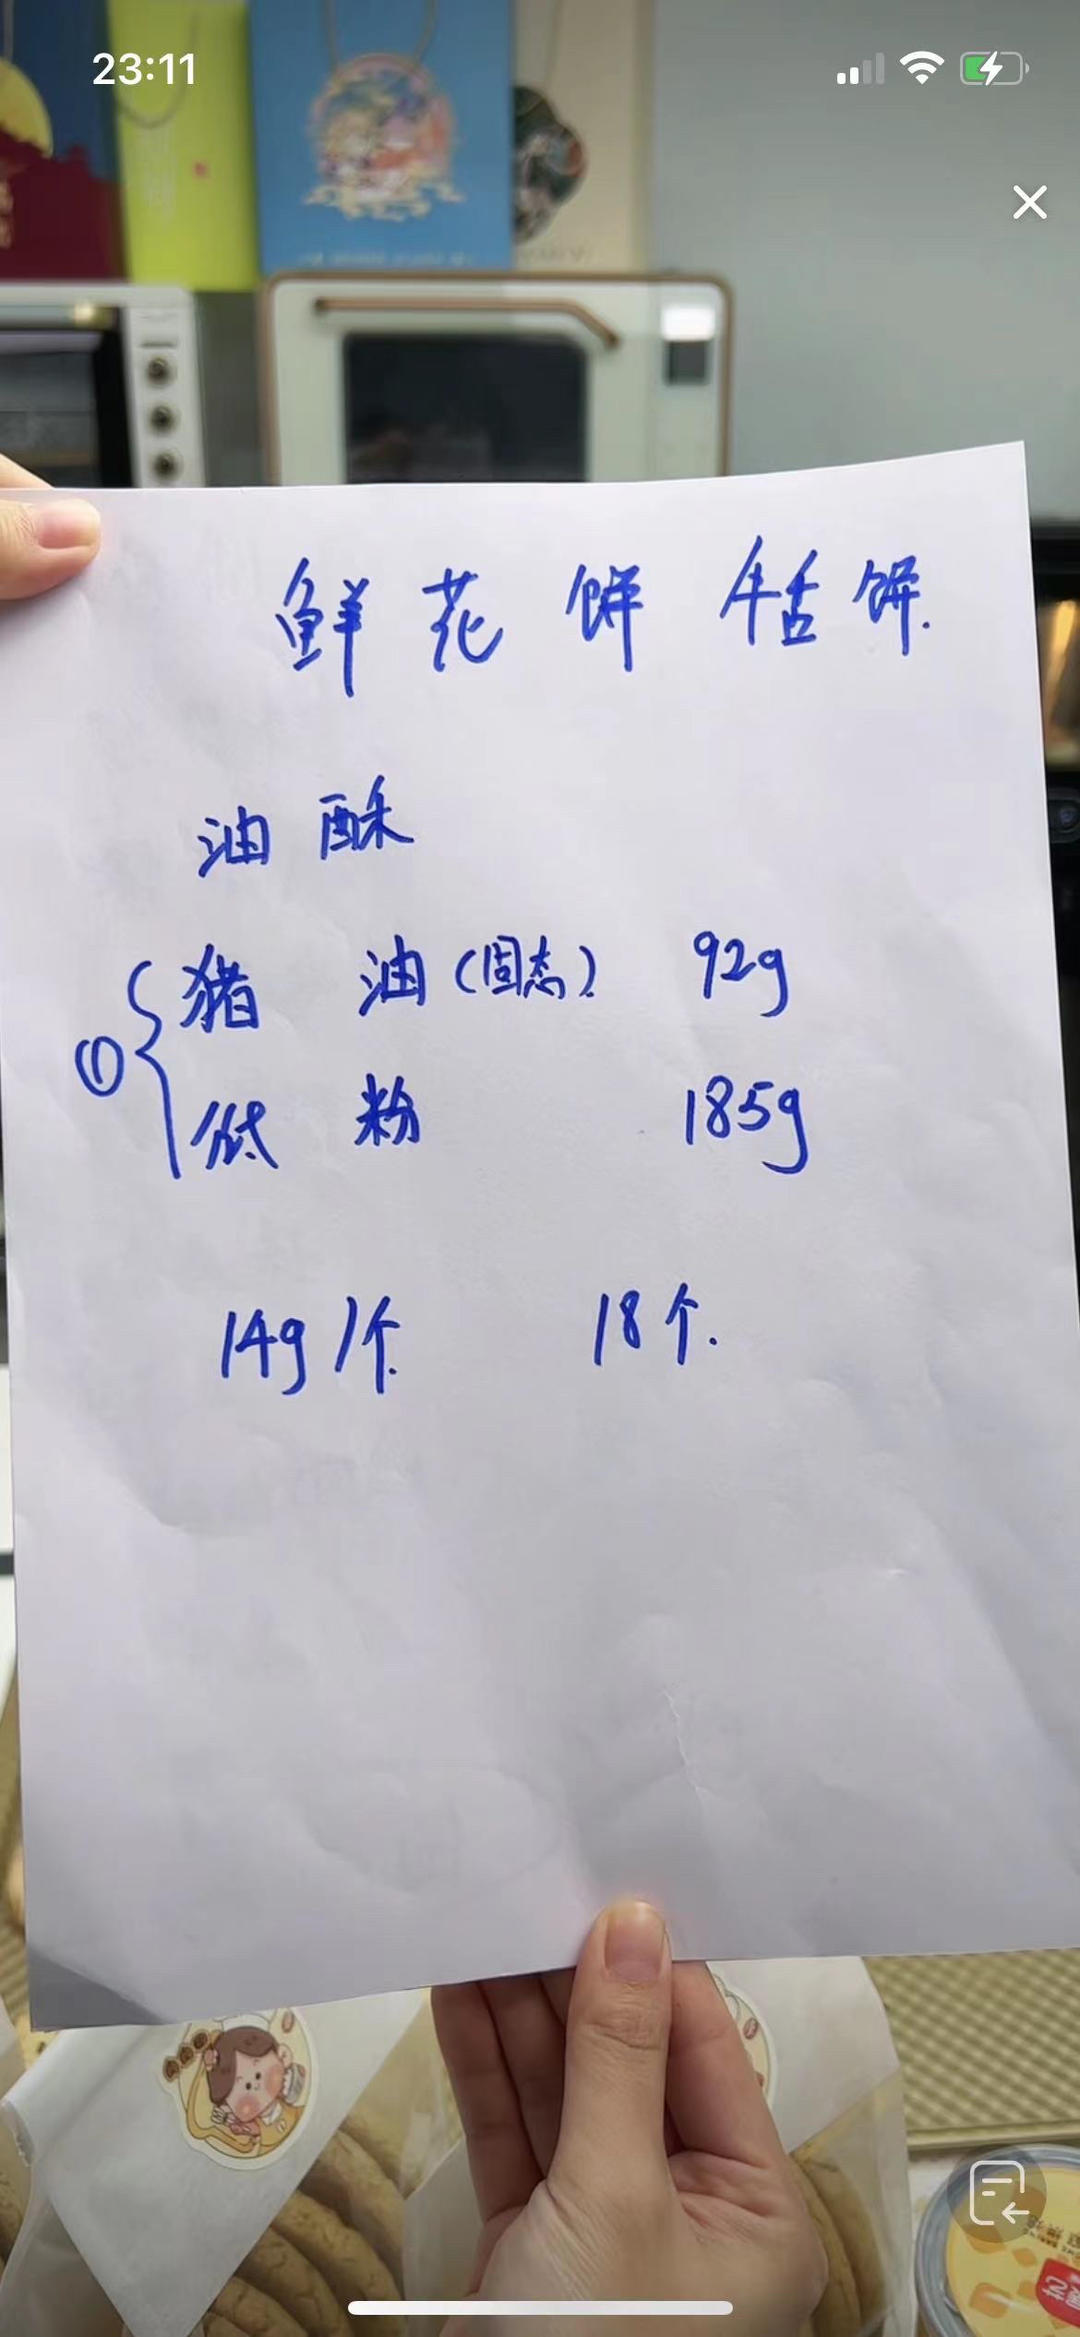 23:11
鲜花饼 牛舌饼.
油酥
① 猪油(固态) 92g
低粉 185g
14g/个 18个.